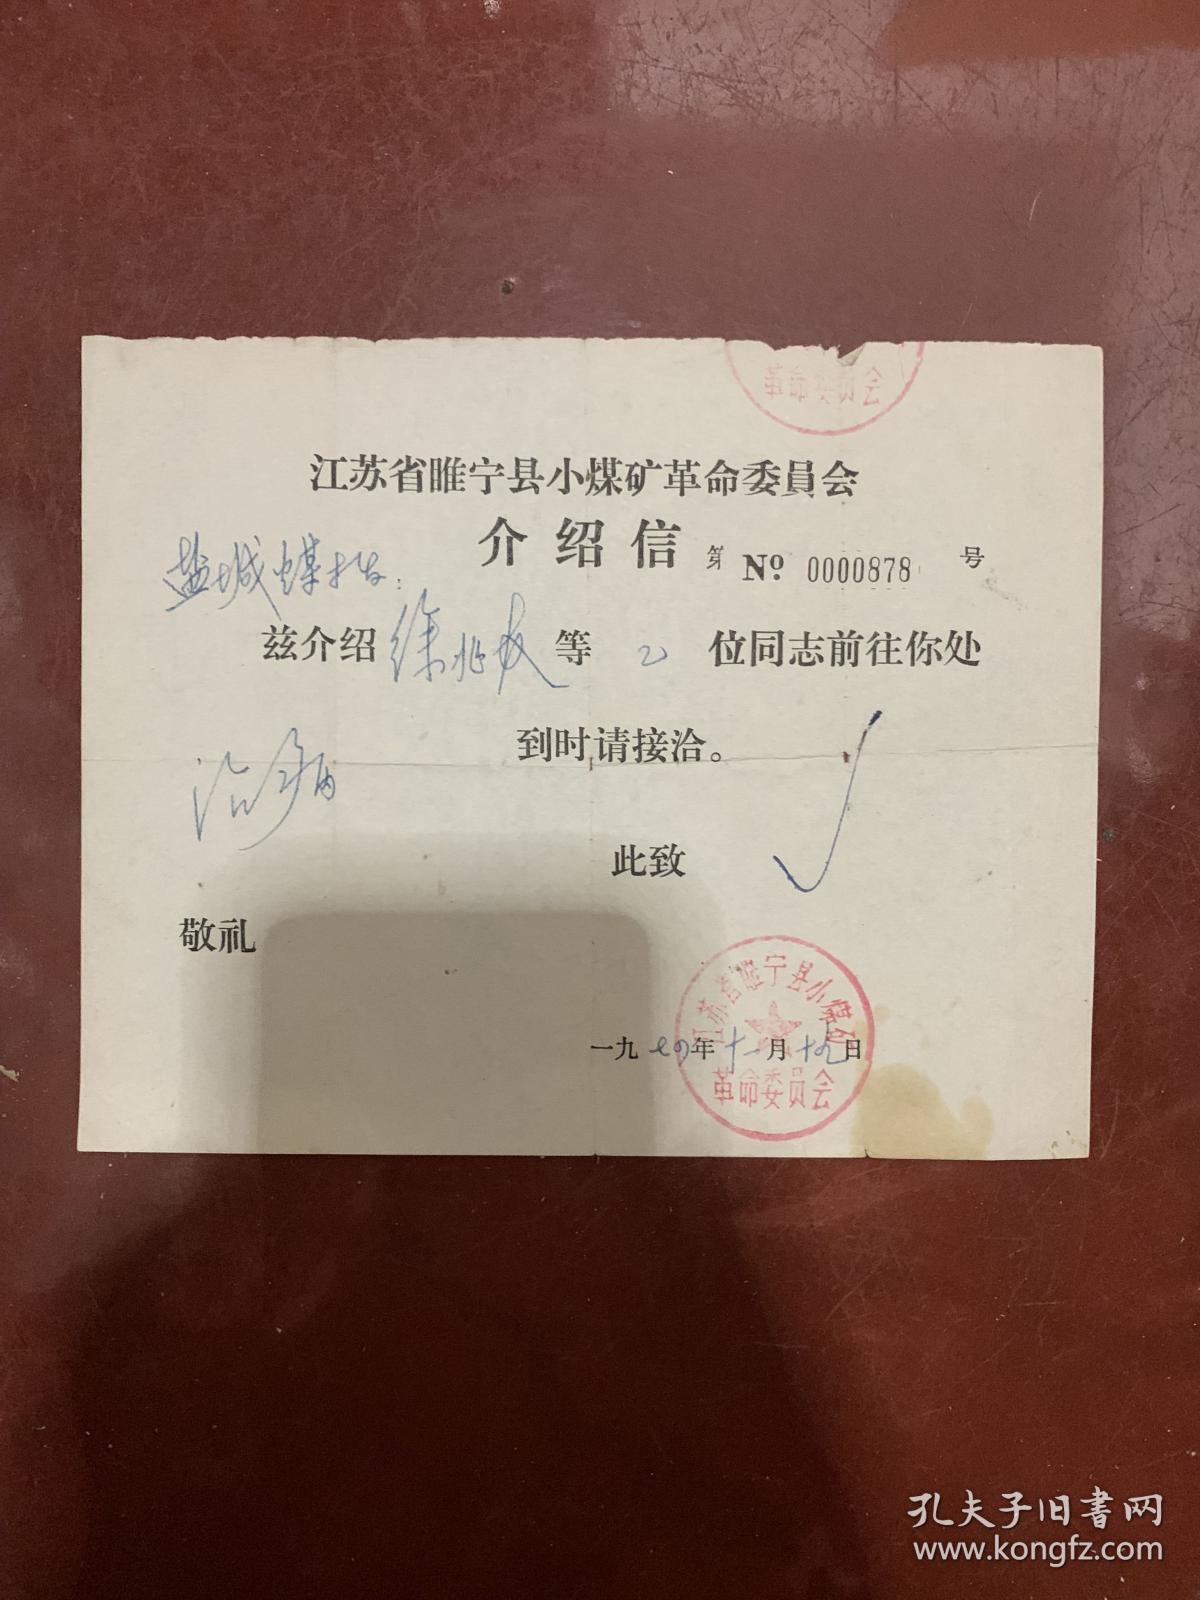 革命委员会
江苏省睢宁县小煤矿革命委員会
介绍信 第 № 0000878 号
盐城煤
兹介绍 徐兆友 等 乙 位同志前往你处
治病 到时请接洽。
此致
敬礼
江苏省睢宁县小煤矿
一九七四年十一月十九日
革命委员会
孔夫子旧书网
www.kongfz.com